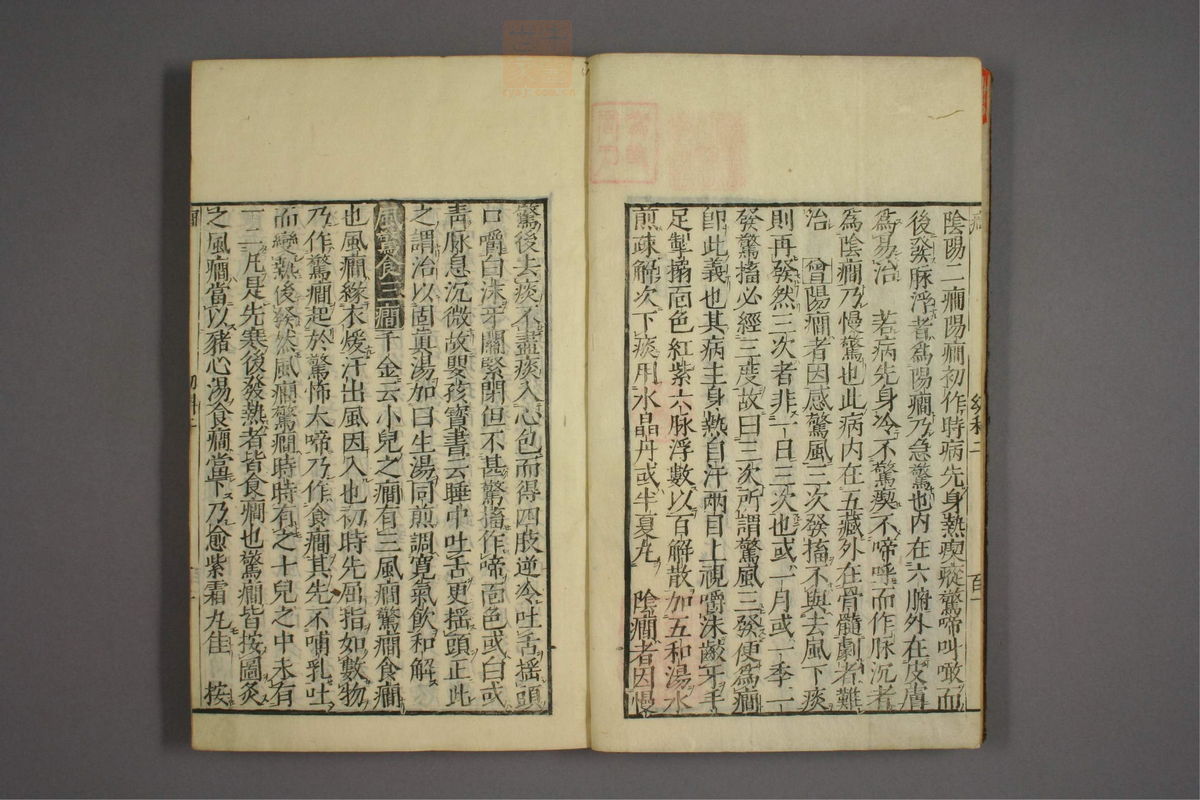 陰陽二癇陽癇初作時病先身熱瘈瘲驚啼叫噉而
後發脉浮者爲陽癇乃急驚也内在六腑外在皮膚
爲易治　若病先身冷不驚瘈不啼呼而作脉沉者
爲陰癇乃慢驚也此病内在五藏外在骨髓劇者難
治　曾陽癇者因感驚風三次發搐不與去風下痰
則再發然三次者非一日三次也或一月或一季一
發驚搐必經三度故曰三次所謂驚風三發便爲癇
卽此義也其病主身熱自汗兩目上視嚼沫齩牙手
足掣搦面色紅紫六脉浮數以百解散加五和湯水
煎疎解次下痰用水晶丹或半夏丸　陰癇者因慢
驚後去痰不盡痰入心包而得四肢逆冷吐舌揺頭
口嚼白沫牙關緊閉但不甚驚搐作啼面色或白或
青脉息沉微故嬰孩寳書云睡中吐舌更揺頭正此
之謂治以固眞湯加日生湯同煎調寛氣飲和解
風驚食三癇千金云小兒之癇有三風癇驚癇食癇
也風癇縁衣煖汗出風因入也初時先屈指如數物
乃作驚癇起於驚怖大啼乃作食癇其先不哺乳吐
而變熱後發然風癇驚癇時時有之十兒之中未有
一二凡是先寒後發熱者皆食癇也驚癇皆按圖灸
之風癇當以豬心湯食癇當下乃愈紫霜丸佳　按